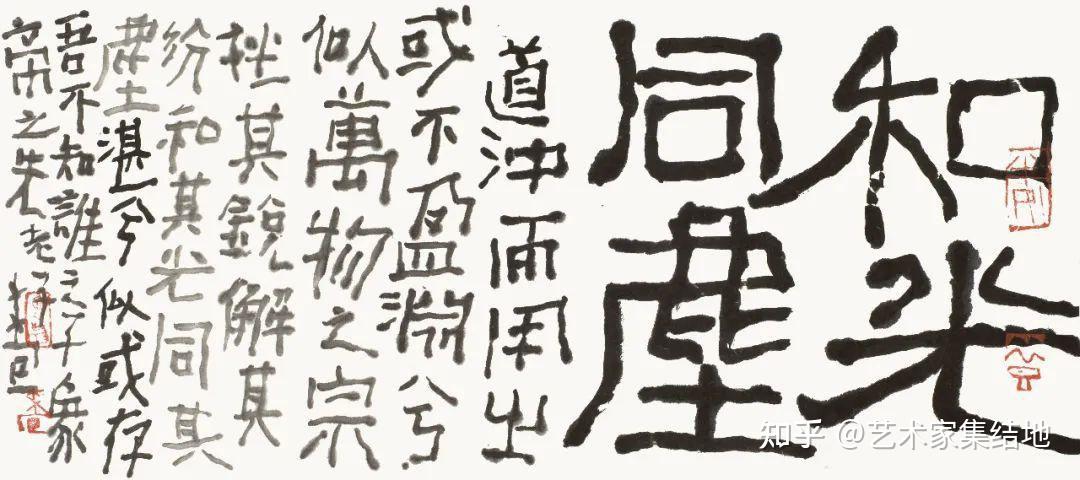 和光
同塵
道沖而用之
或不盈淵兮
似萬物之宗
挫其銳解其
紛和其光同其
塵湛兮似或存
吾不知誰之子象
帝之先老
知乎 @艺术家集结地